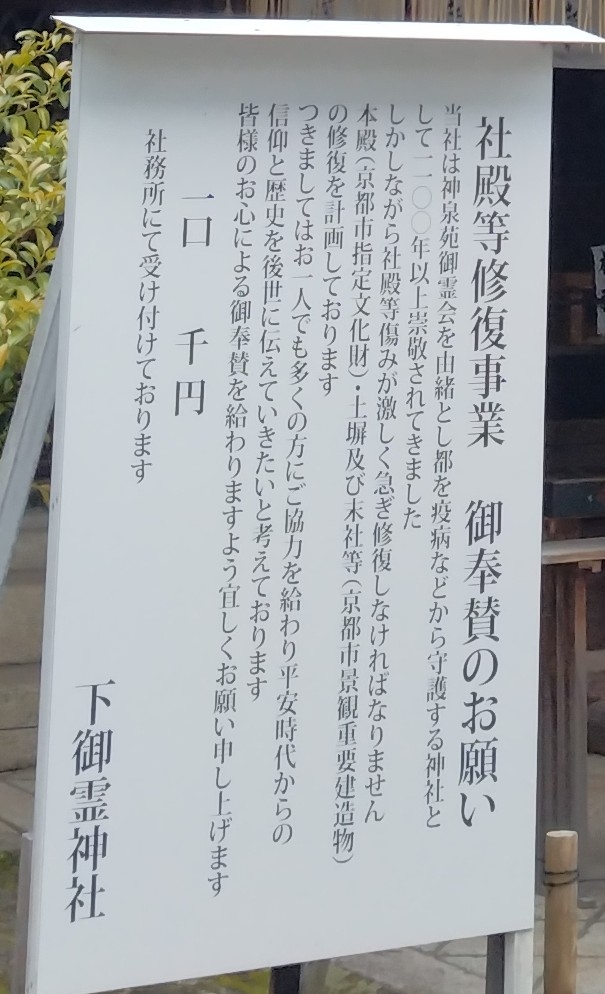 社殿等修復事業　御奉賛のお願い
当社は神泉苑御霊会を由緒とし都を疫病などから守護する神社と
して一一〇〇年以上崇敬されてきました
しかしながら社殿等傷みが激しく急ぎ修復しなければなりません
本殿（京都市指定文化財）・土塀及び末社等（京都市景観重要建造物）
の修復を計画しております
つきましてはお一人でも多くの方にご協力を給わり平安時代からの
信仰と歴史を後世に伝えていきたいと考えております
皆様のお心による御奉賛を給わりますよう宜しくお願い申し上げます
一口　千円
社務所にて受け付けております
下御霊神社